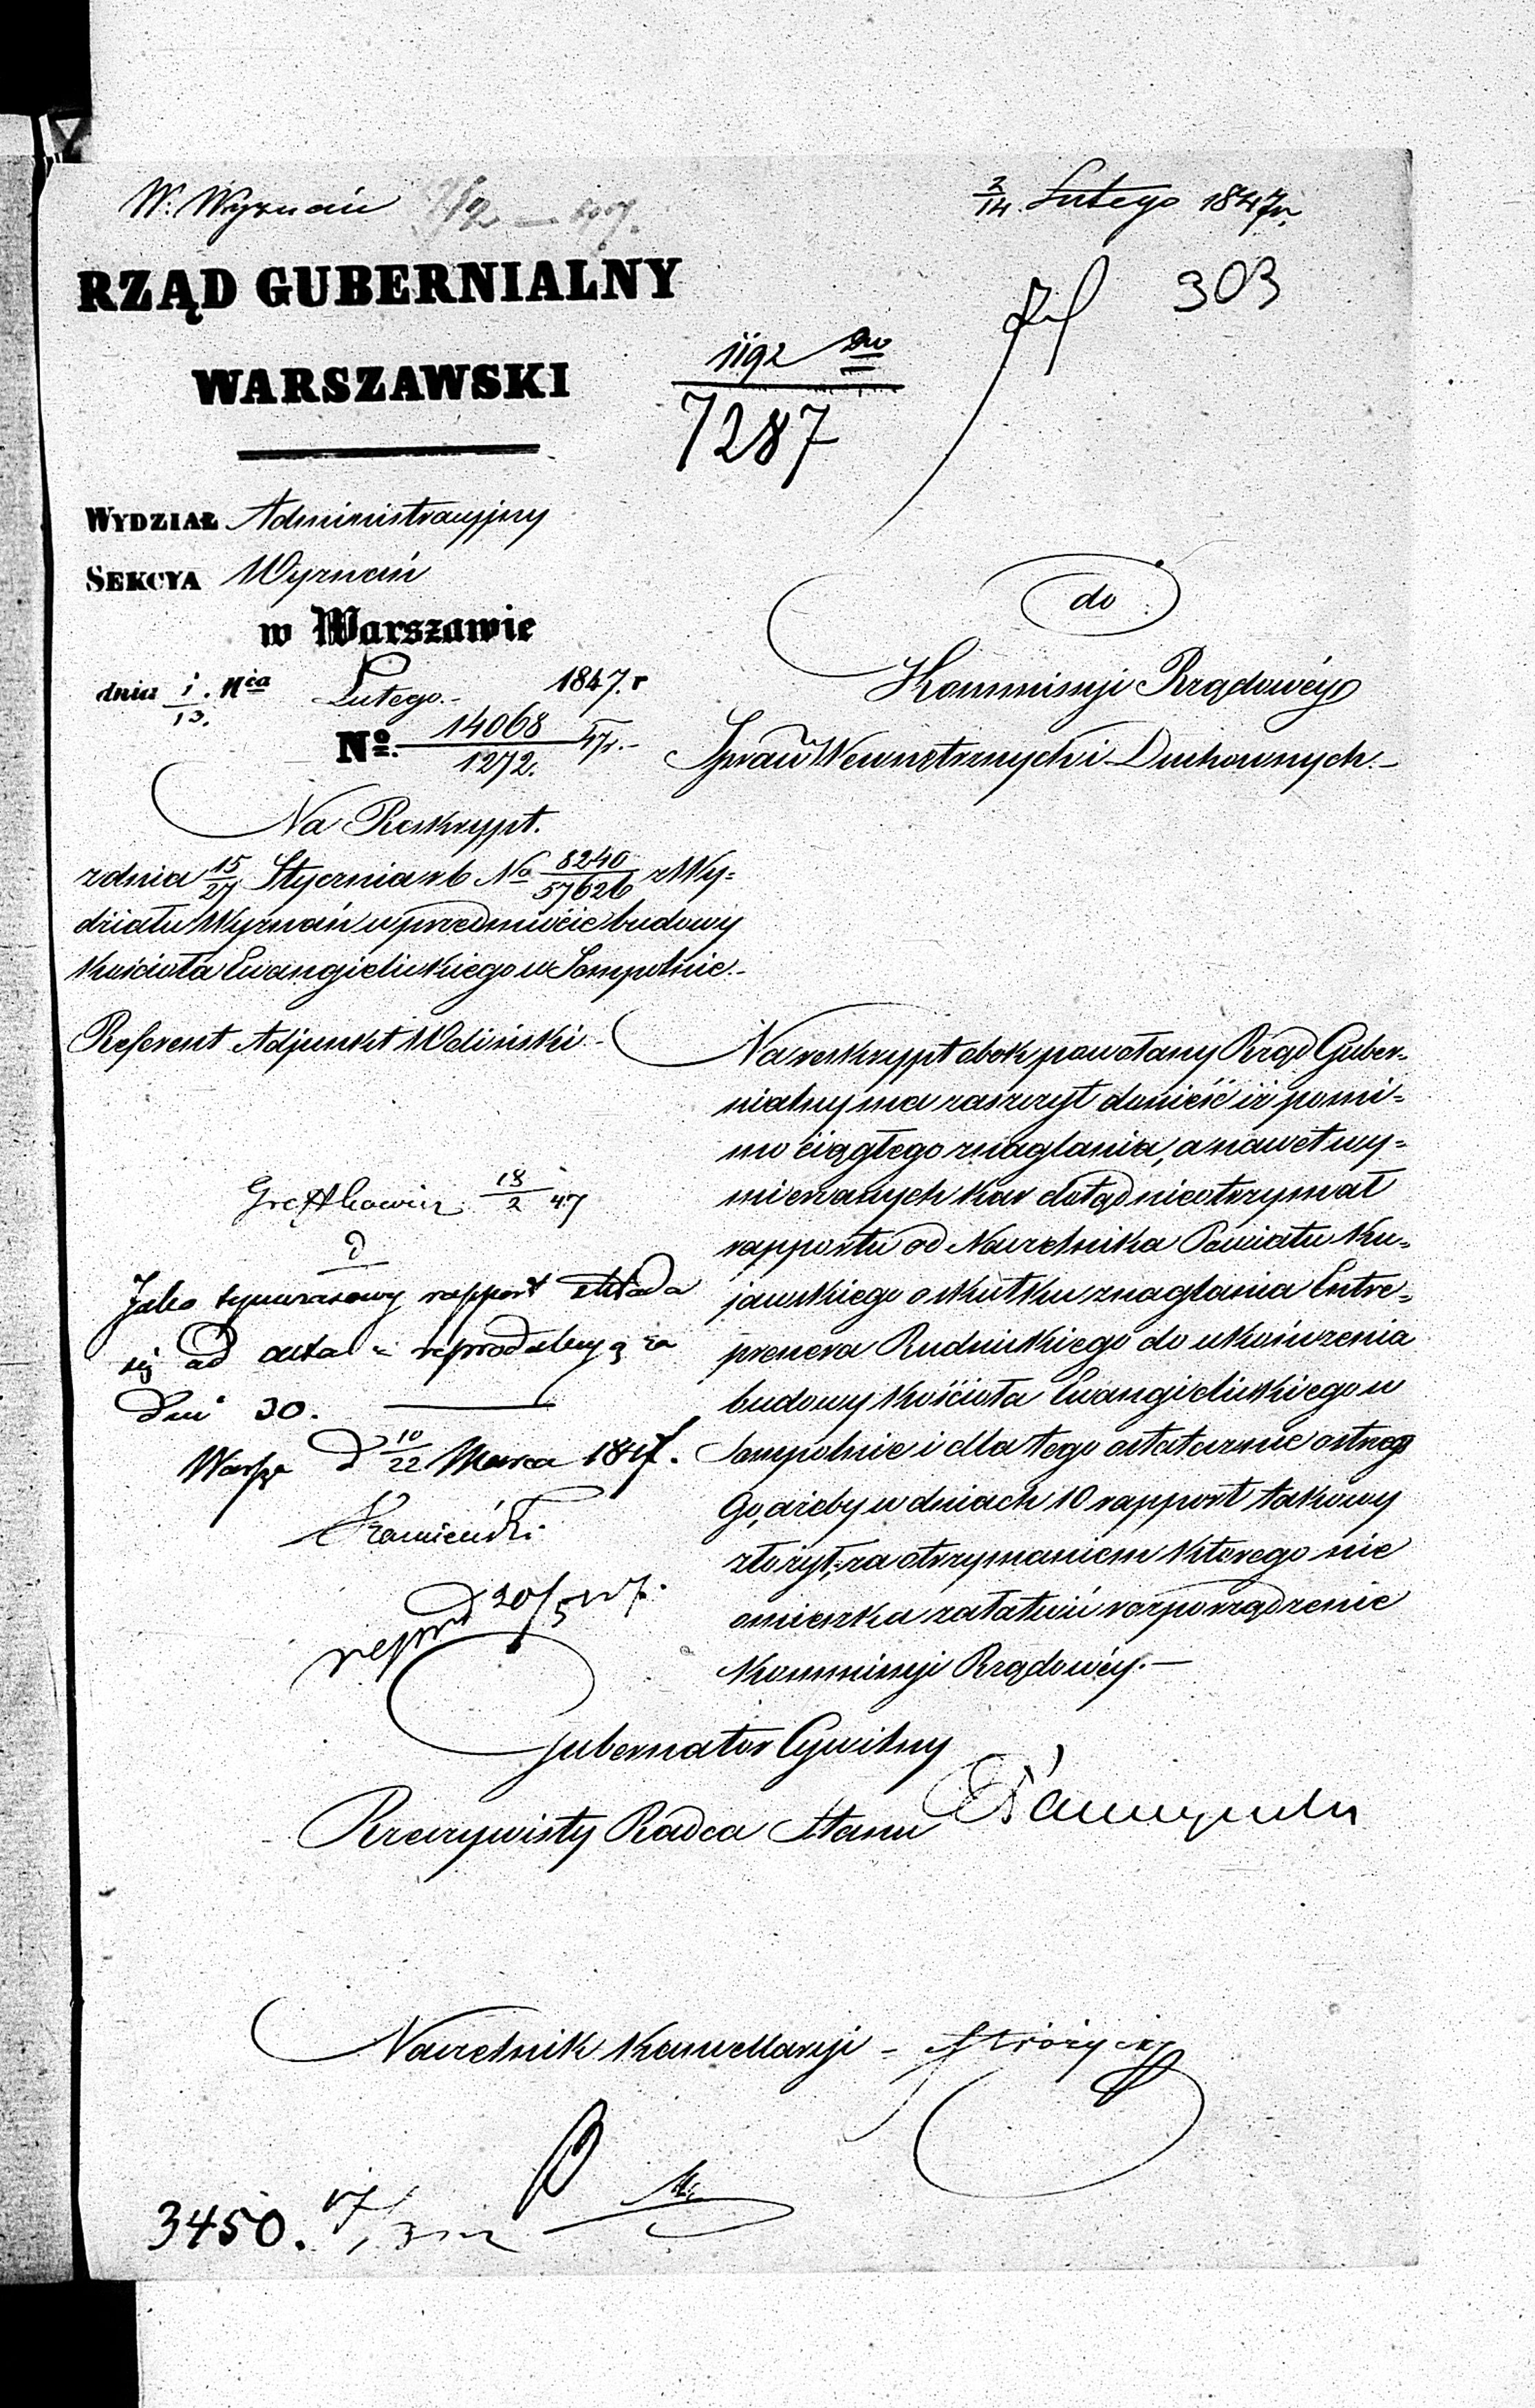 W. Wyznań
2/14. Lutego 1847 r.
303
RZĄD GUBERNIALNY
WARSZAWSKI
1192
7287
WYDZIAŁ Administracyjny
SEKCYA Wyznań
w Warszawie
dnia 1/13. Mca Lutego 1847. r
No. 14068/1272.
do
Kommissyi Rządowéy
Spraw Wewnetrznych i Duchownych.
Na Reskrypt.
z dnia 15/27 Stycznia r b No 8240/57626 z Wy=
działu Wyznań w przedmiocie budowy
Kościoła Ewangielickiego w Sompolnie.
Referent Adjunkt Woliński
Na reskrypt obok powołany Rząd Guber=
nialny ma zaszczyt donieść iż pomi=
mo ciągłego znaglania, a nawet wy=
mierzanych kar dotąd nieotrzymał
rapportu od Naczelnika Powiatu Ku=
jawskiego o skutku znaglania Entre=
prenera Rudnickiego do ukończenia
budowy Kościoła Ewangielickiego w
Sompolnie i dla tego ostatecznie ostrzegł
Go, ażeby w dniach 10 rapport takowy
złożył, za otrzymaniem którego nie
omieszka załatwić rozporządzenie
Kommissyi Rządowéy.
18/2 47
Jako tymczasowy rapport składa
się ad acta z reprodukcyą za
dni 30.
Warsz. d 10/22 Marca 1847.
Kamieński
repr d 20/5 47.
Gubernator Cywilny
Rzeczywisty Radca Stanu
Naczelnik Kancellaryi
3450.